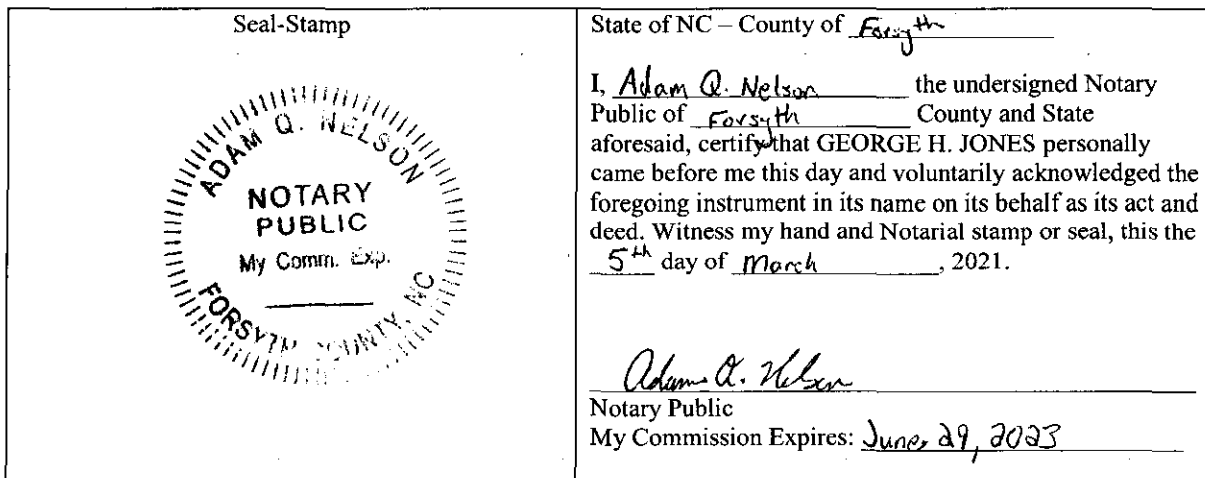 Seal-Stamp
ADAM Q. NELSON
NOTARY
PUBLIC
My Comm. Exp.
FORSYTH COUNTY, NC
State of NC – County of Forsyth
I, Adam Q. Nelson the undersigned Notary
Public of Forsyth County and State
aforesaid, certify that GEORGE H. JONES personally
came before me this day and voluntarily acknowledged the
foregoing instrument in its name on its behalf as its act and
deed. Witness my hand and Notarial stamp or seal, this the
5th day of March, 2021.
Adam Q. Nelson
Notary Public
My Commission Expires: June, 29, 2023